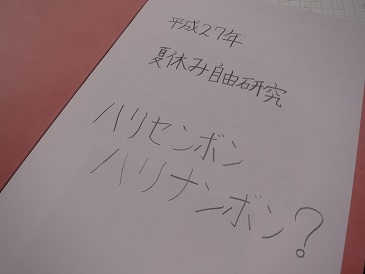 平成27年
夏休み自由研究
ハリセンボン
ハリナンボン?